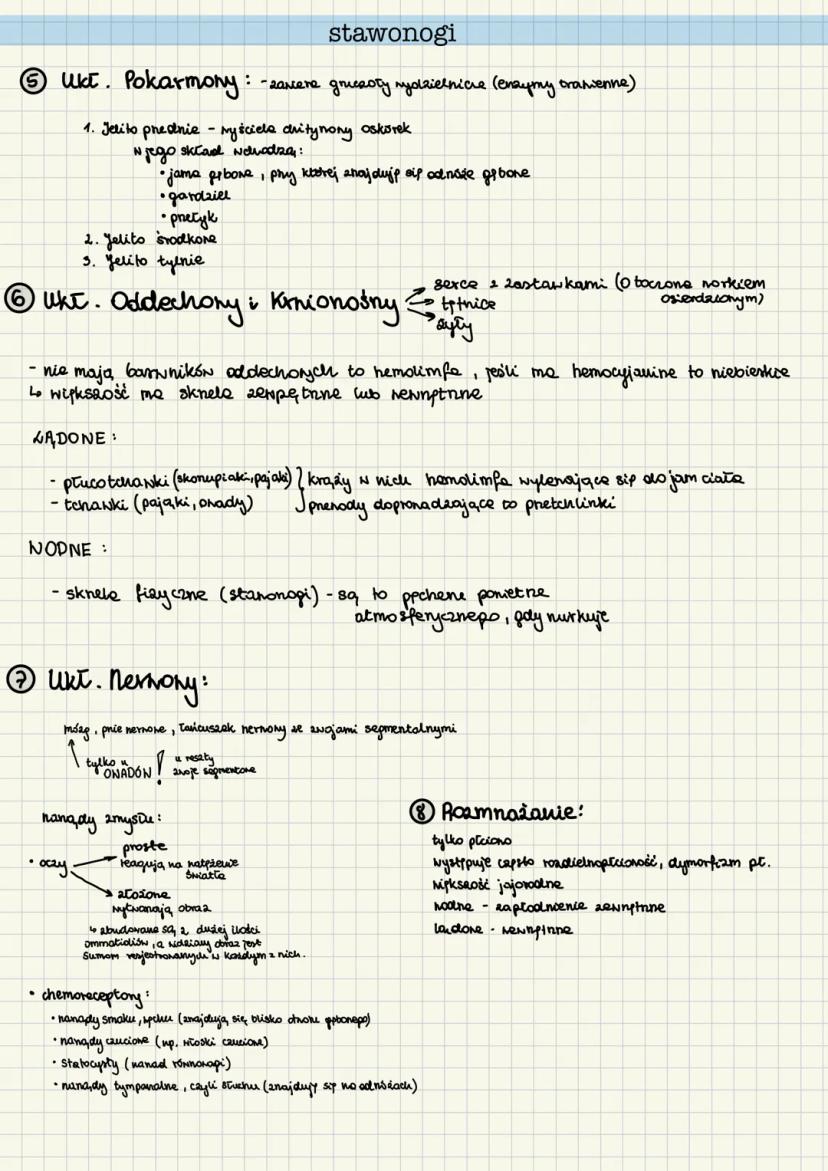 stawonogi
⑤ Ukł. Pokarmowy: - zawiera gruczoły wydzielnicze (enzymy trawienne)
1. Jelito przednie - wyściela chitynowy oskórek
W jego skład wchodzą:
• jama gębowa, przy której znajduję się odnóże gębowe
• gardziel
• przełyk
2. Jelito środkowe
3. Jelito tylnie
⑥ Ukł. Oddechowy i Krwionośny
→ serce z zastawkami (otoczone workiem osierdziowym)
→ tętnice
→ żyły
- nie mają barwników oddechowych to hemolimfa, jeśli ma hemocyjanine to niebieskie
↳ większość ma skrzela zewnętrzne lub wewnętrzne
LĄDOWE:
- płucotchawki (skorupiaki, pająki) } krąży w nich hemolimfa wylewająca się do jam ciała
- tchawki (pająki, owady) } przewody doprowadzające to przetchlinki
WODNE:
- skrzela fizyczne (stawonogi) - są to pęcherze powietrza
atmosferycznego, gdy nurkuje
⑦ Ukł. Nerwowy:
mózg, pnie nerwowe, łańcuszek nerwowy ze zwojami segmentalnymi
tylko u OWADÓW! u reszty zwoje segmentowe
narządy zmysłu:
• oczy
→ proste
reagują na natężenie
światła
→ złożone
wytwarzają obraz
↳ zbudowane są z dużej ilości
ommatidiów, a widziany obraz jest
sumom rejestrowanych w każdym z nich.
• chemoreceptory:
• narządy smaku, węchu (znajdują się blisko otworu gębowego)
• narządy czuciowe (np. włoski czuciowe)
• statocysty (narząd równowagi)
• narządy tympanalne, czyli słuchu (znajduję się na odnóżach)
⑧ Rozmnażanie:
tylko płciowo
występuje często rozdzielnopłciowość, dymorfizm pł.
większość jajorodne
wodne - zapłodnienie zewnętrzne
lądowe - wewnętrzne